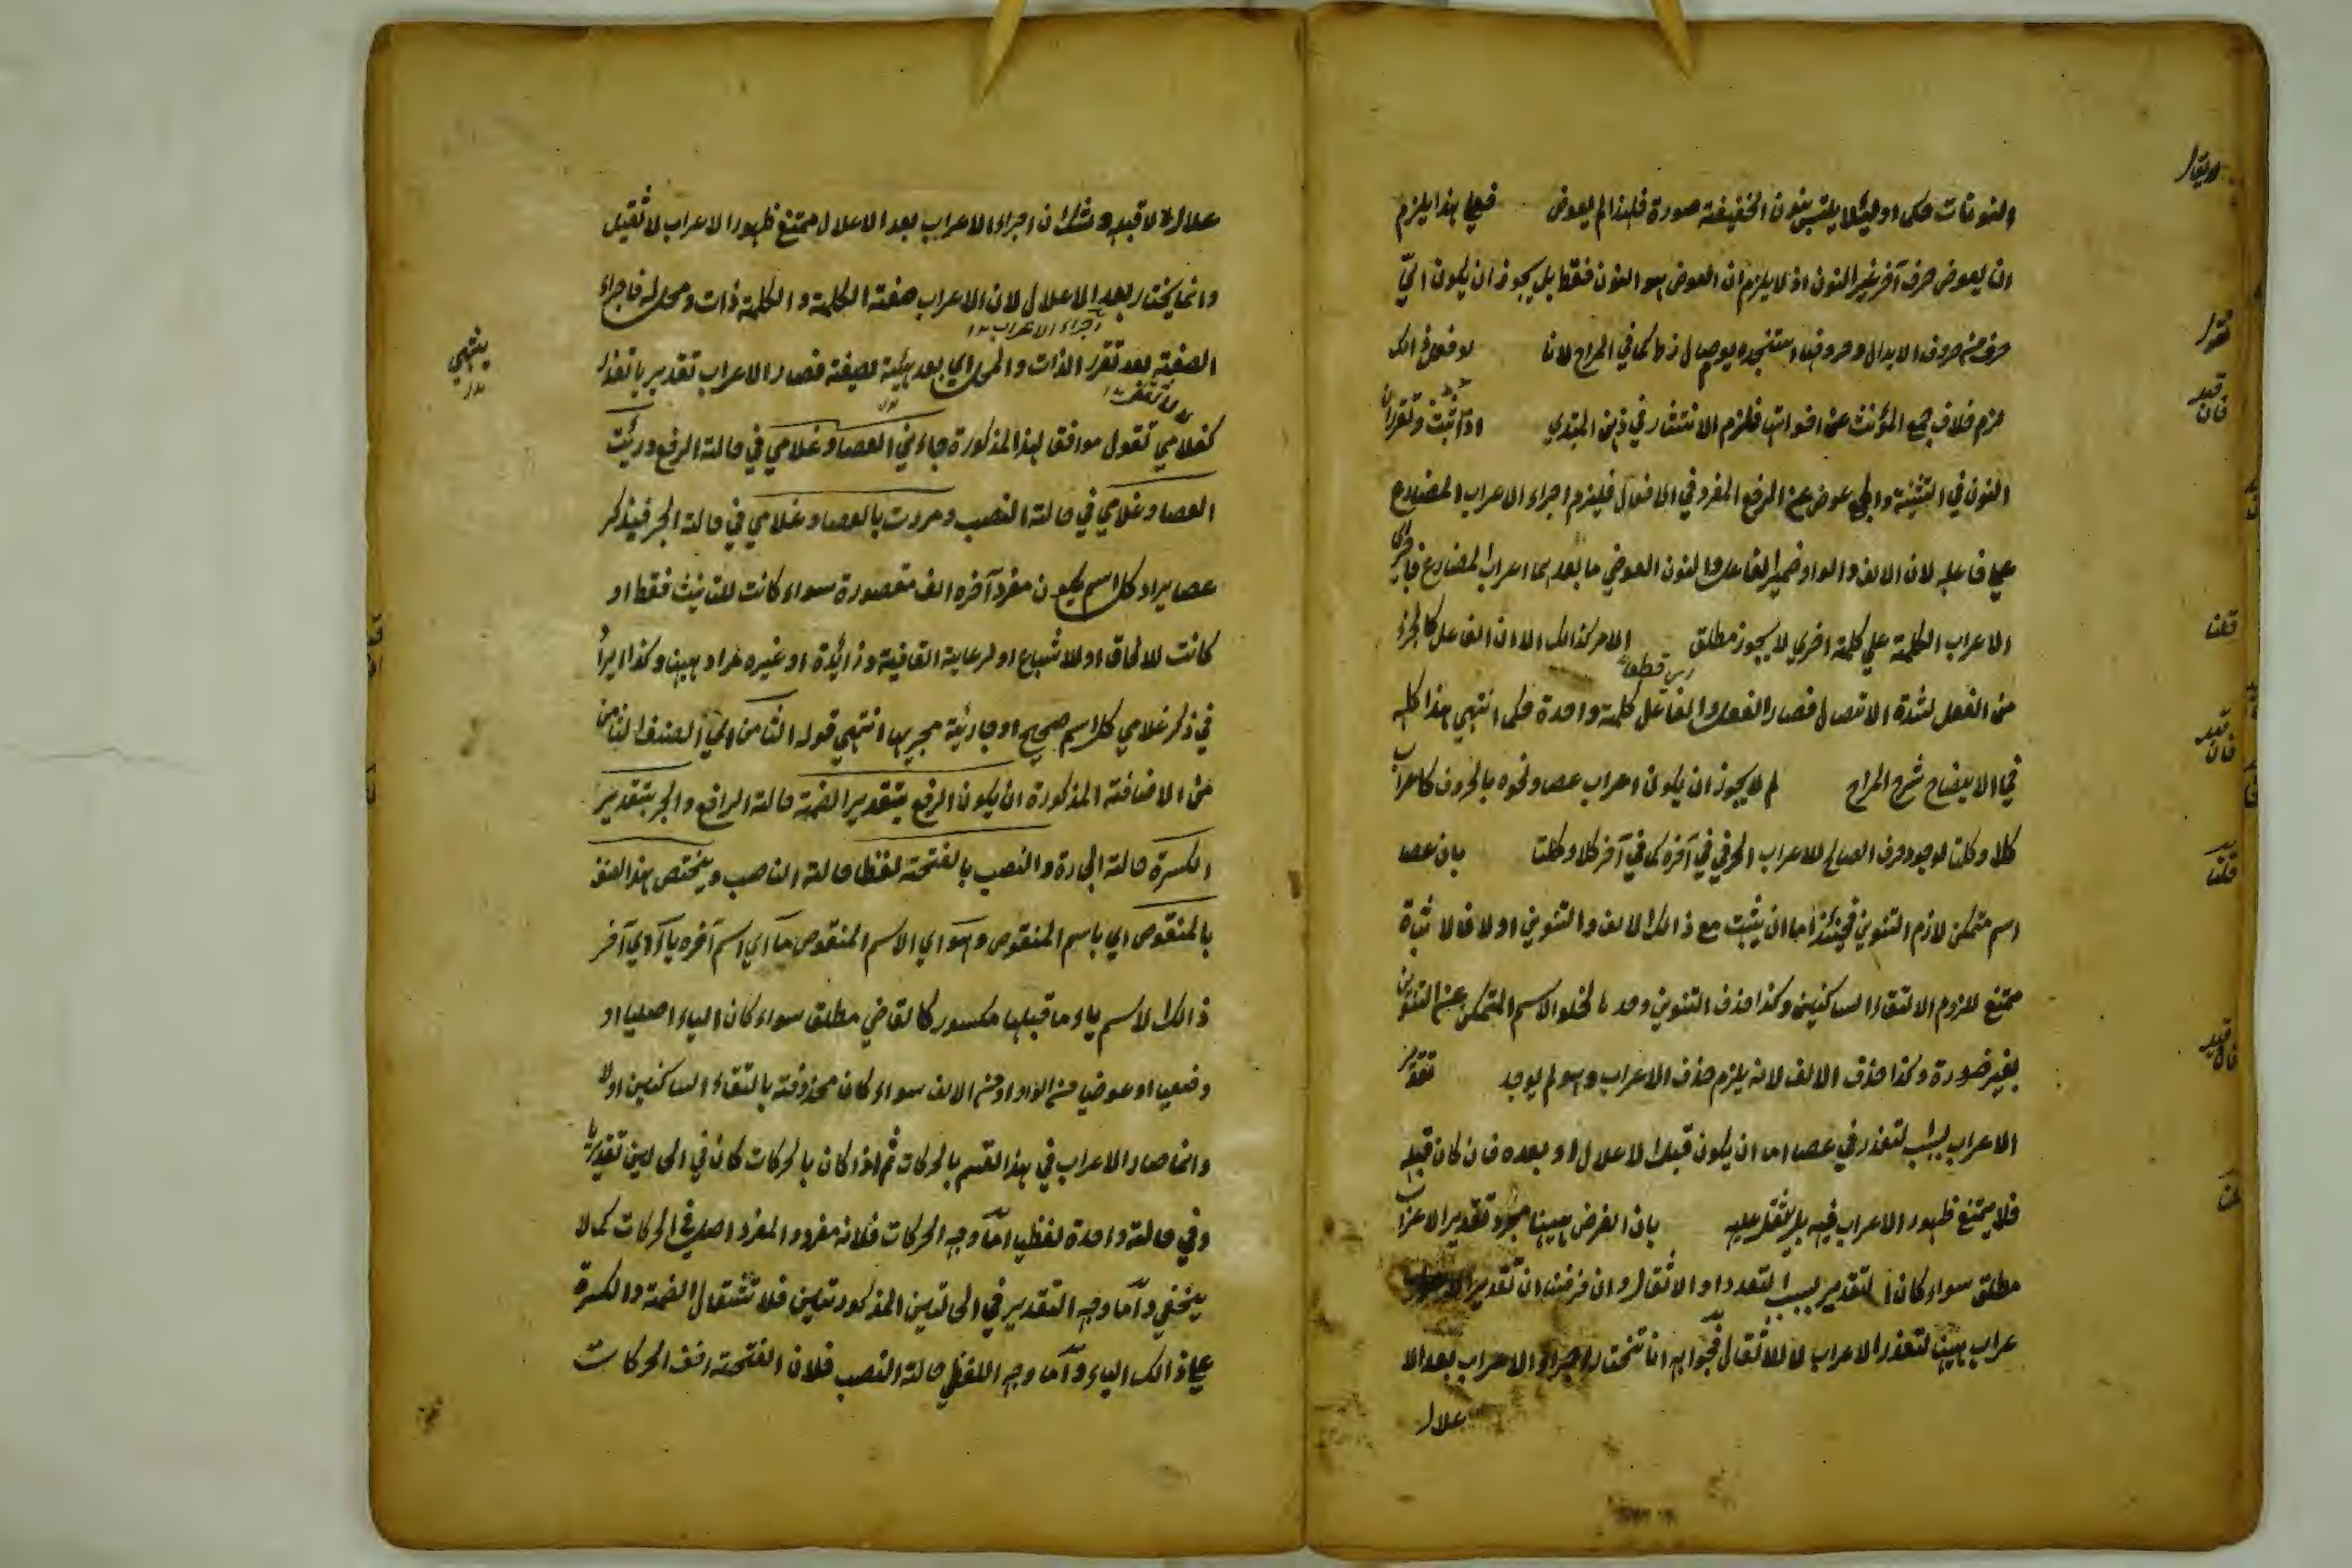 النونات حكما ولئلا يلتبس بنون الخفيفة صورة فلهذا لم يعوض فعلى هذا يلزم
ان يعوض حرف آخر غير النون اذ لا يلزم ان العوض هو النون فقط بل يجوز ان يكون
حرف من حروف الابدال وحروفها استنجده يوم صال زط كما في المراح لانا
لزم خلاف جمع المؤنث عن اخواتها فلزم الانتشار في ذهن المبتدي
النون في التثنية والجمع عوض عن الرفع المفرد في الافعال فيلزم اجراء الاعراب المضارع
على فاعله لان الالف والواو ضمير الفاعل والنون العوضي ما بعدهما اعراب المضارع
الاعراب الكلمة على كلمة اخرى لا يجوز مطلق الامر كذالك الا ان الفاعل كالجزء
من الفعل لشدة الاتصال فصار الفعل والفاعل كلمة واحدة حكما انتهى هذا كله
في الايضاح شرح المراح لم لا يجوز ان يكون اعراب عصا ونحوه بالحروف كاعراب
كلا وكلتا لوجود حرف الصالح للاعراب الحرفي في آخره كما في آخر كلا وكلتا بان عصا
اسم متمكن لازم التنوين فحينئذ اما ان يثبت مع ذالك الالف والتنوين اولا فالاثبات
ممتنع للزوم الالتقاء الساكنين وكذا حذف التنوين وحدها لخلو الاسم المتمكن عن التنوين
بغير ضرورة وكذا حذف الالف لانه يلزم حذف الاعراب وهو لم يوجد تقدير
الاعراب بسبب لتعذر في عصا اما ان يكون قبل الاعلال او بعده فان كان قبله
فلا يمتنع ظهور الاعراب فيه بل يثقل عليه بان الغرض ههنا مجرد تقدير الاعراب
مطلق سواء كان التقدير بسبب التعذر او الاثقال وان فرضنا ان تقدير الا
عراب ههنا لتعذر الاعراب لا للاثقال فجوابه انا نختار اجراء الاعراب بعد الا
علال
علال لا قبله وشك ان اجراء الاعراب بعد الاعلال ممتنع ظهور الاعراب لا ثقيل
وانما يختار بعد الاعلال لان الاعراب صفة الكلمة والكلمة ذات ومحل له فاجراء
الصفة بعد تقرر الذات والمحل اي بعد هيئة صيغة فصار الاعراب تقديريا تعذر
كغلامي تقول موافقا لهذا المذكورة جاءني العصا وغلامي في حالة الرفع ورئيت
العصا وغلامي في حالة النصب ومررت بالعصا وغلامي في حالة الجر فيذكر
عصا يراد كل اسم يكون مفرد آخره الف مقصورة سواء كانت للتانيث فقط او
كانت للالحاق او للاشباع او لرعاية القافية وزائدة او غيره مراد ههنا وكذا يراد
في ذكر غلامي كل اسم صحيح او جارية مجريها انتهى قوله الثامن اي الصنف الثامن
من الاضافة المذكورة ان يكون الرفع بتقدير الضمة حالة الرافع والجر بتقدير
الكسرة حالة الجارة والنصب بالفتحة لفظا حالة الناصب ويختص هذا الصنف
بالمنقوص اي باسم المنقوص وهو اي الاسم المنقوص ما اي اسم آخره ياء اي آخر
ذالك الاسم ياء ما قبلها مكسور كالقاضي مطلق سواء كان الياء اصليا او
وضعيا او عوضيا من الواو او من الالف سواء كان محذوفة بالتقاء الساكنين اولا
وانما صار الاعراب في هذا القسم بالحركات ثم اذا كان بالحركات كان في الحالين تقديريا
وفي حالة واحدة لفظيا اما وجه الحركات فلانه مفرد والمفرد اصل في الحركات كما لا
يخفى واما وجه التقدير في الحالتين المذكورتين فلاستثقال الضمة والكسرة
على ذالك الياء واما وجه اللفظي حالة النصب فلان الفتحة اخف الحركات